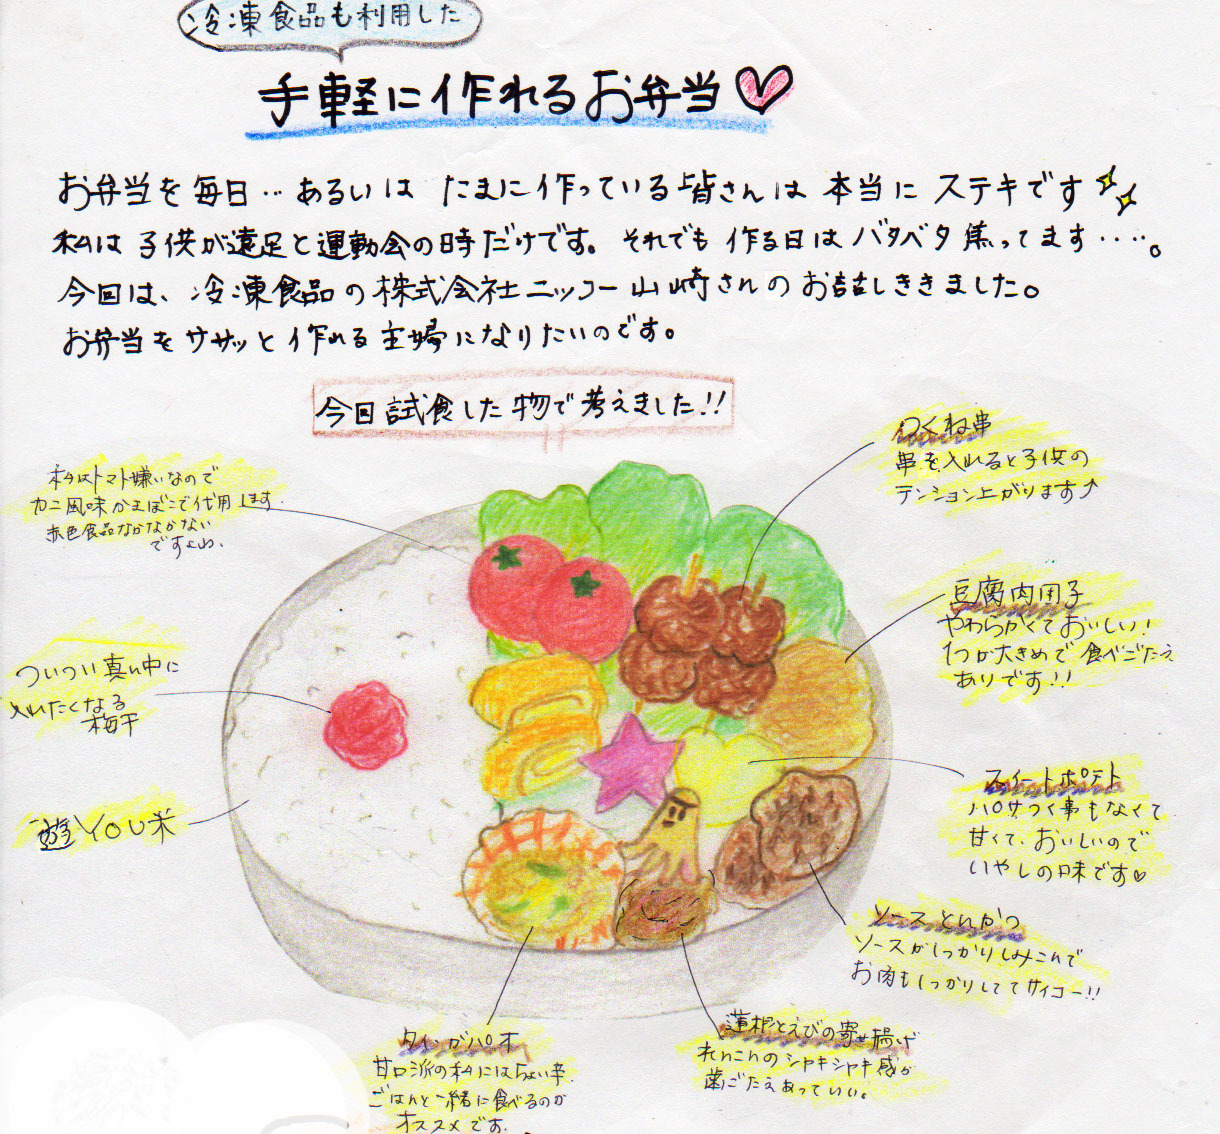 冷凍食品も利用した
手軽に作れるお弁当♡
お弁当を毎日‥あるいは たまに作っている皆さんは 本当に ステキです
私は子供が遠足と運動会の時だけです。それでも 作る日は バタバタ焦ってます‥‥。
今回は、冷凍食品の株式会社ニッコー山崎さんのお話しききました。
お弁当をササッと作れる主婦になりたいのです。
今回試食した物で考えました!!
つくね串
串を入れると子供の
テンション上がります↑
私はトマト嫌いなので
カニ風味かまぼこで代用します.
赤色食品なかなかない
ですよね、
豆腐肉団子
やわらかくておいしい!
1つが大きめで食べごたえ
ありです!!
ついつい真ん中に
入れたくなる
梅干
スイートポテト
パサつく事もなくて
甘くて、おいしいので
いやしの味です♡
遊YOU米
ソースとんかつ
ソースがしっかりしみこんで
お肉もしっかりしててサイコー!!
蓮根とえびの寄せ揚げ
れんこんのシャキシャキ感が
歯ごたえあっていい。
甘口派の私にはちょい辛.
ごはんと一緒に食べるのが
オススメです.